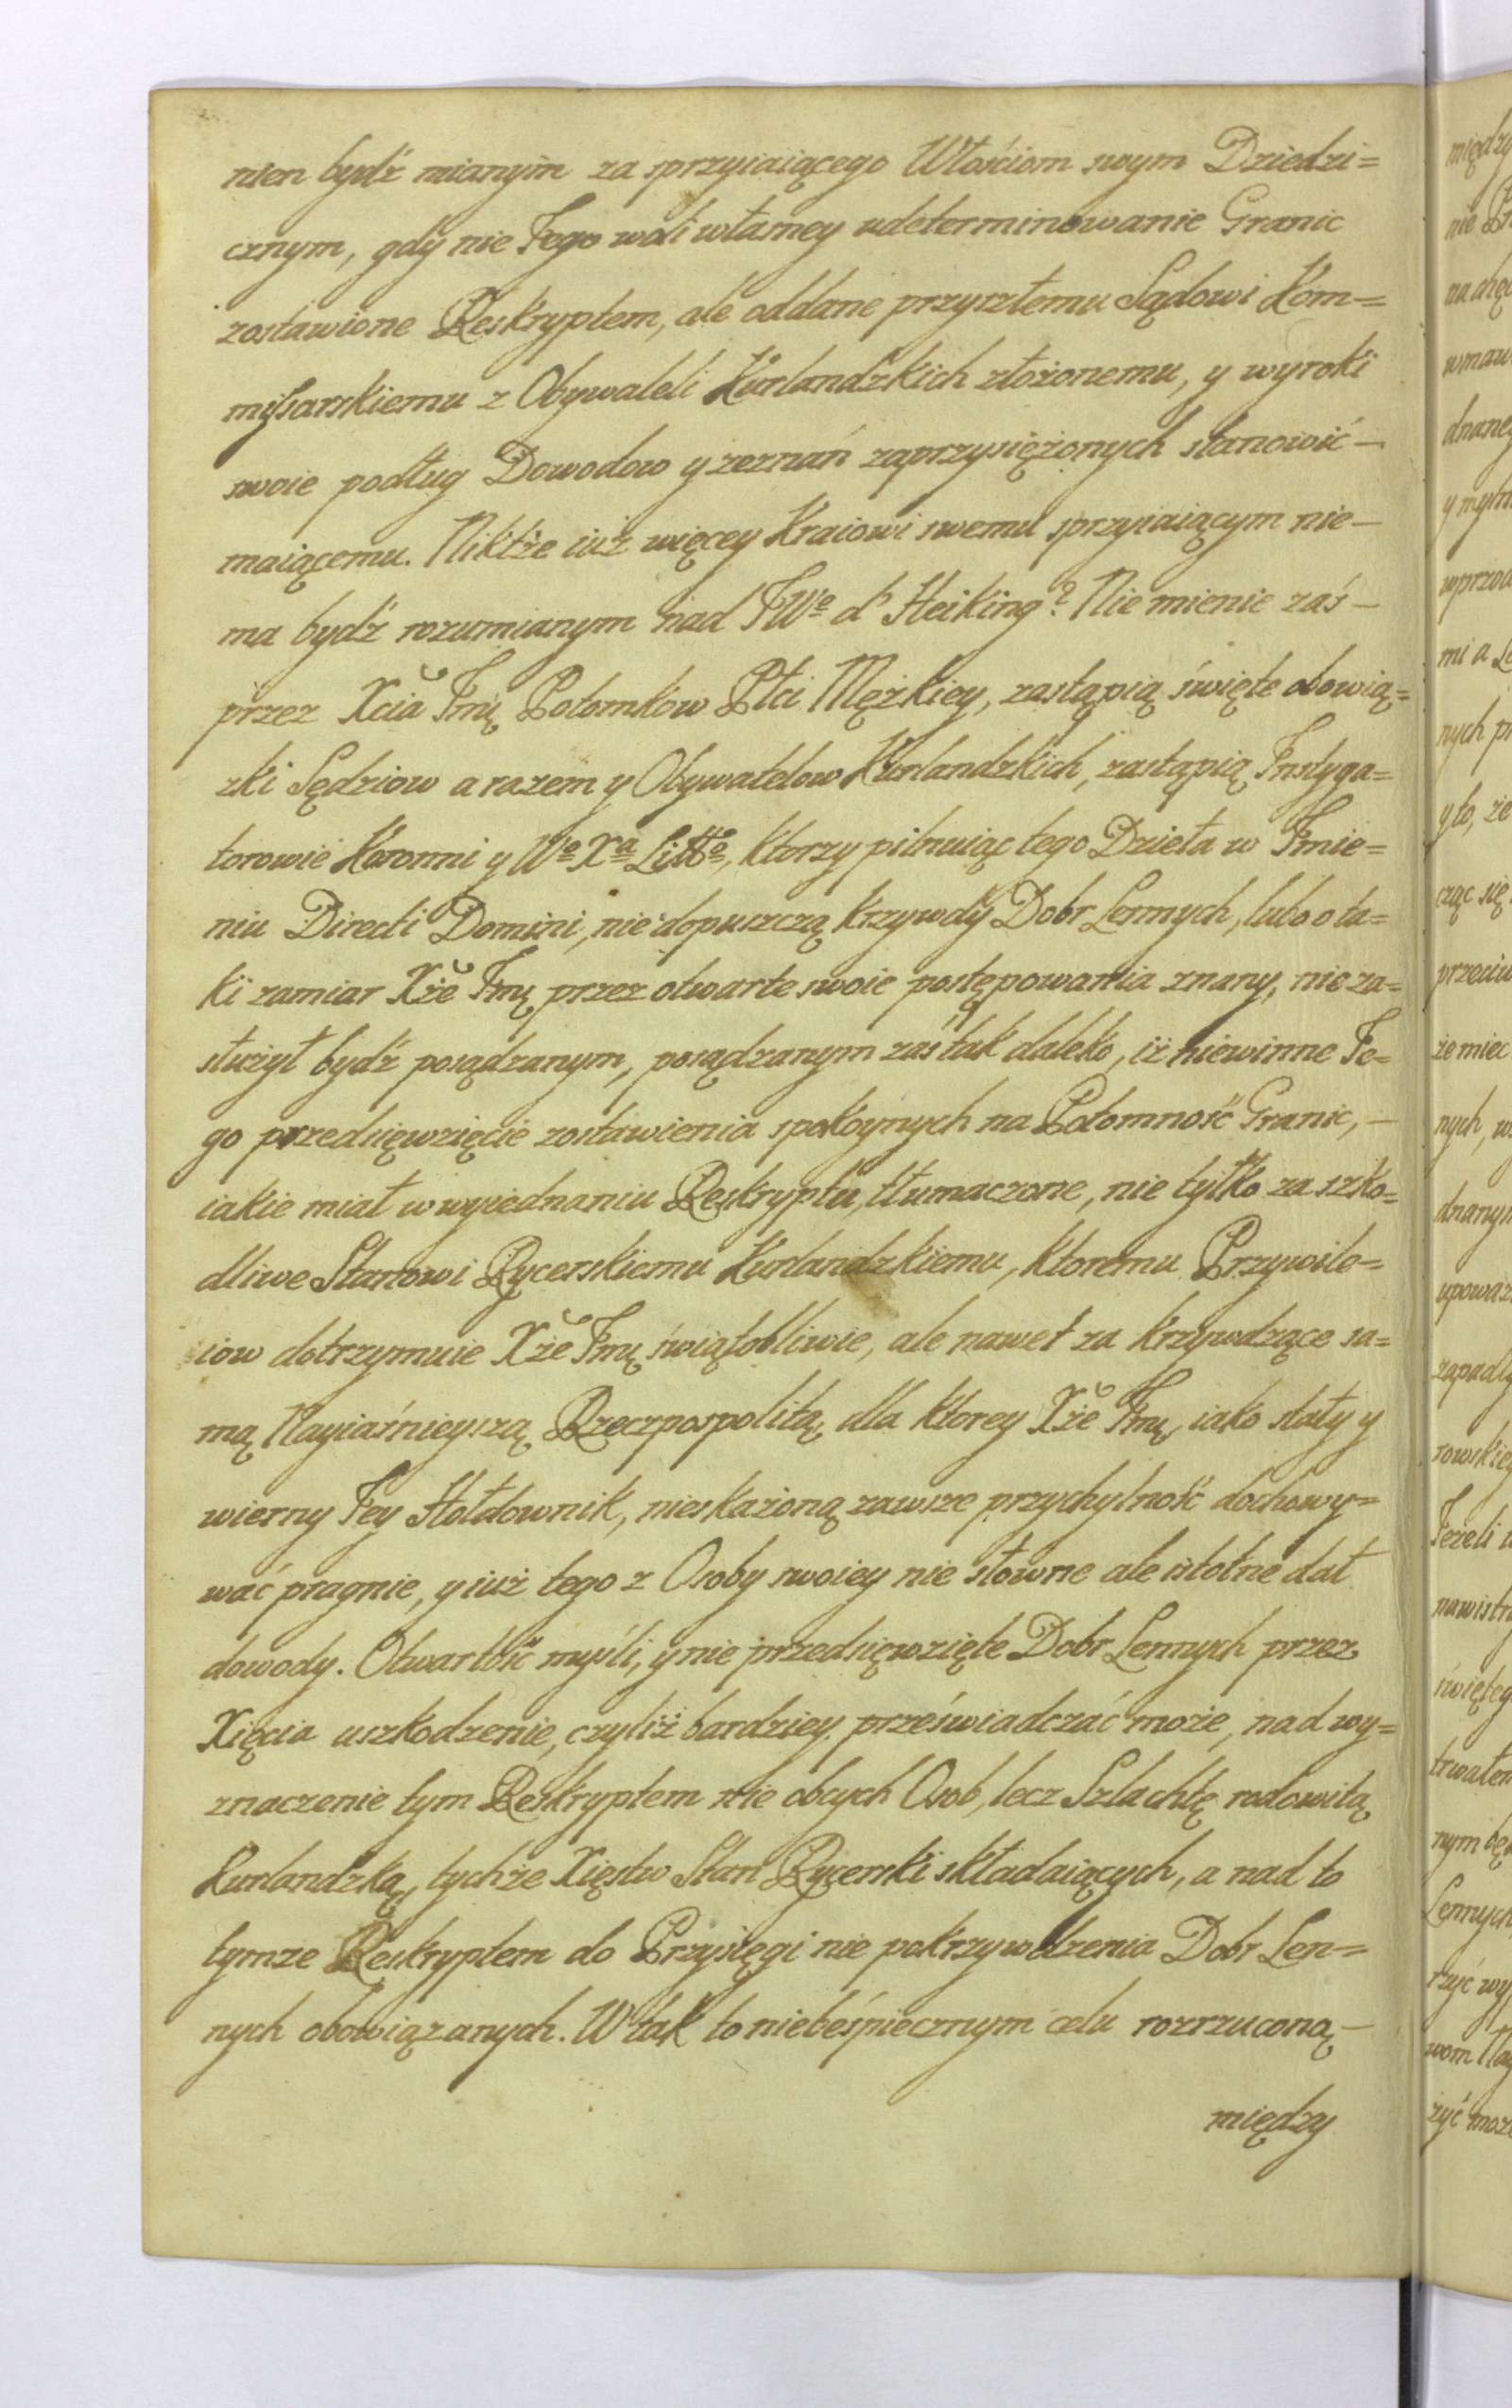 nien bydź mianym za sprzyiaiącego Włościom swym Dziedzi=
cznym, gdy nie Jego woli własney udeterminowanie Granic
zostawione Reskryptem, ale oddane przyszłemu Sądowi Kom=
mißarskiemu z Obywateli Kurlandzkich złożonemu, y wyroki
swoie podług Dowodow y zeznań zaprzysiężonych stanowić –
maiącemu. Niktże iuż więcey Kraiowi swemu sprzyiaiącym nie –
ma bydź rozumianym nad JWo d' Heiking? Nie mienie zaś –
przez Xcia Jmę Potomkow Płci Mężkiey, zastąpią święte obowią=
zki Sędziow a razem y Obywatelow Kurlandzkich, zastąpią Instyga=
torowie Koronni y Wo Xa Litto, ktorzy pilnuiąc tego Dzieła w Jmie=
niu Directi Domini, nie dopuszczą krzywdy Dobr Lennych, lubo o ta=
ki zamiar Xże Jmę przez otwarte swoie postępowania znany, nie za=
służył bydź posądzanym, posądzanym zaś tak daleko, iż niewinne Je=
go przedsięwzięcie zostawienia spokoynych na Potomność Granic, –
iakie miał w wyiednaniu Reskryptu, tłumaczone, nie tylko za szko=
dliwe Stanowi Rycerskiemu Kurlandzkiemu, ktoremu Przywile=
iow dotrzymuie Xże Jmę świątobliwie, ale nawet za krzywdzące sa=
mą Nayiaśnieyszą Rzeczpospolitą, dla ktorey Xże Jmę, iako stały y
wierny Jey Hołdownik, nieskażoną zawsze przychylność dochowy=
wać pragnie, y iuż tego z Osoby swoiey nie słowne ale istotne dał
dowody. Otwartość myśli, y nie przedsięwzięte Dobr Lennych przez
Xięcia uszkodzenie, czyliż bardziey przeświadczać może, nad wy=
znaczenie tym Reskryptem nie obcych Osob, lecz Szlachtę rodowitą
Kurlandzką, tychże Xięstw Stan Rycerski składaiących, a nad to
tymże Reskryptem do Przysięgi nie pokrzywdzenia Dobr Len=
nych obowiązanych. W tak to niebeśpiecznym celu rozrzuconą –
między